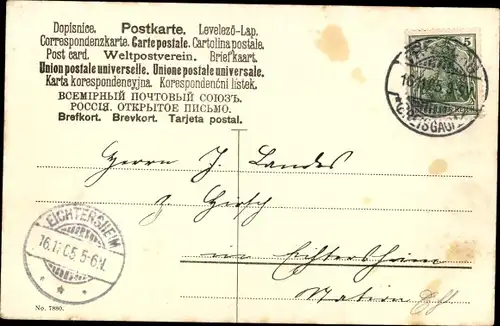 Dopisnice. Postkarte. Levelező-Lap.
Correspondenzkarte. Carte postale. Cartolina postale.
Post card. Weltpostverein. Briefkaart.
Union postale universelle. Unione postale universale.
Karta korespondencyjna. Korespondenční lístek.
ВСЕМІРНЫЙ ПОЧТОВЫЙ СОЮЗЪ.
РОССІЯ. ОТКРЫТОЕ ПИСЬМО.
Brefkort. Brevkort. Tarjeta postal.
5
16.11.05
Herrn J. Landes
z. Hirsch
in Eichtersheim
Station
EICHTERSHEIM
16.11.05. 5-6N.
No. 7880.